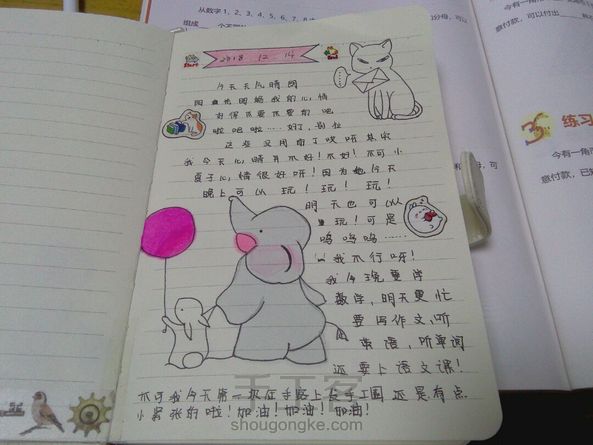 从数字1、2、3、4、5、6、7、8
组成
今有一角
意付款,可以付出
练习
今有一角
意付款,已知
2018 12 14
Start
End
今天天气晴朗
因 也明媚 我的心情
好得不要不要的 吧
啦吧啦……好了,别拉
这些没用的了 其实
我今天心情月不好!不好!不可小
夏子心情很好呀!因为她今天
晚上可以玩!玩!玩!
明天也可以
玩!可是
呜呜呜……
我不行呀!
我今晚要学
数学,明天更忙
要写作文、听
英语,听单词
还要上语文课!
不可我今天第一次在手路上 手工圈还是有点
小紧张的啦!加油!加油!加油!
手工客
shougongke.com